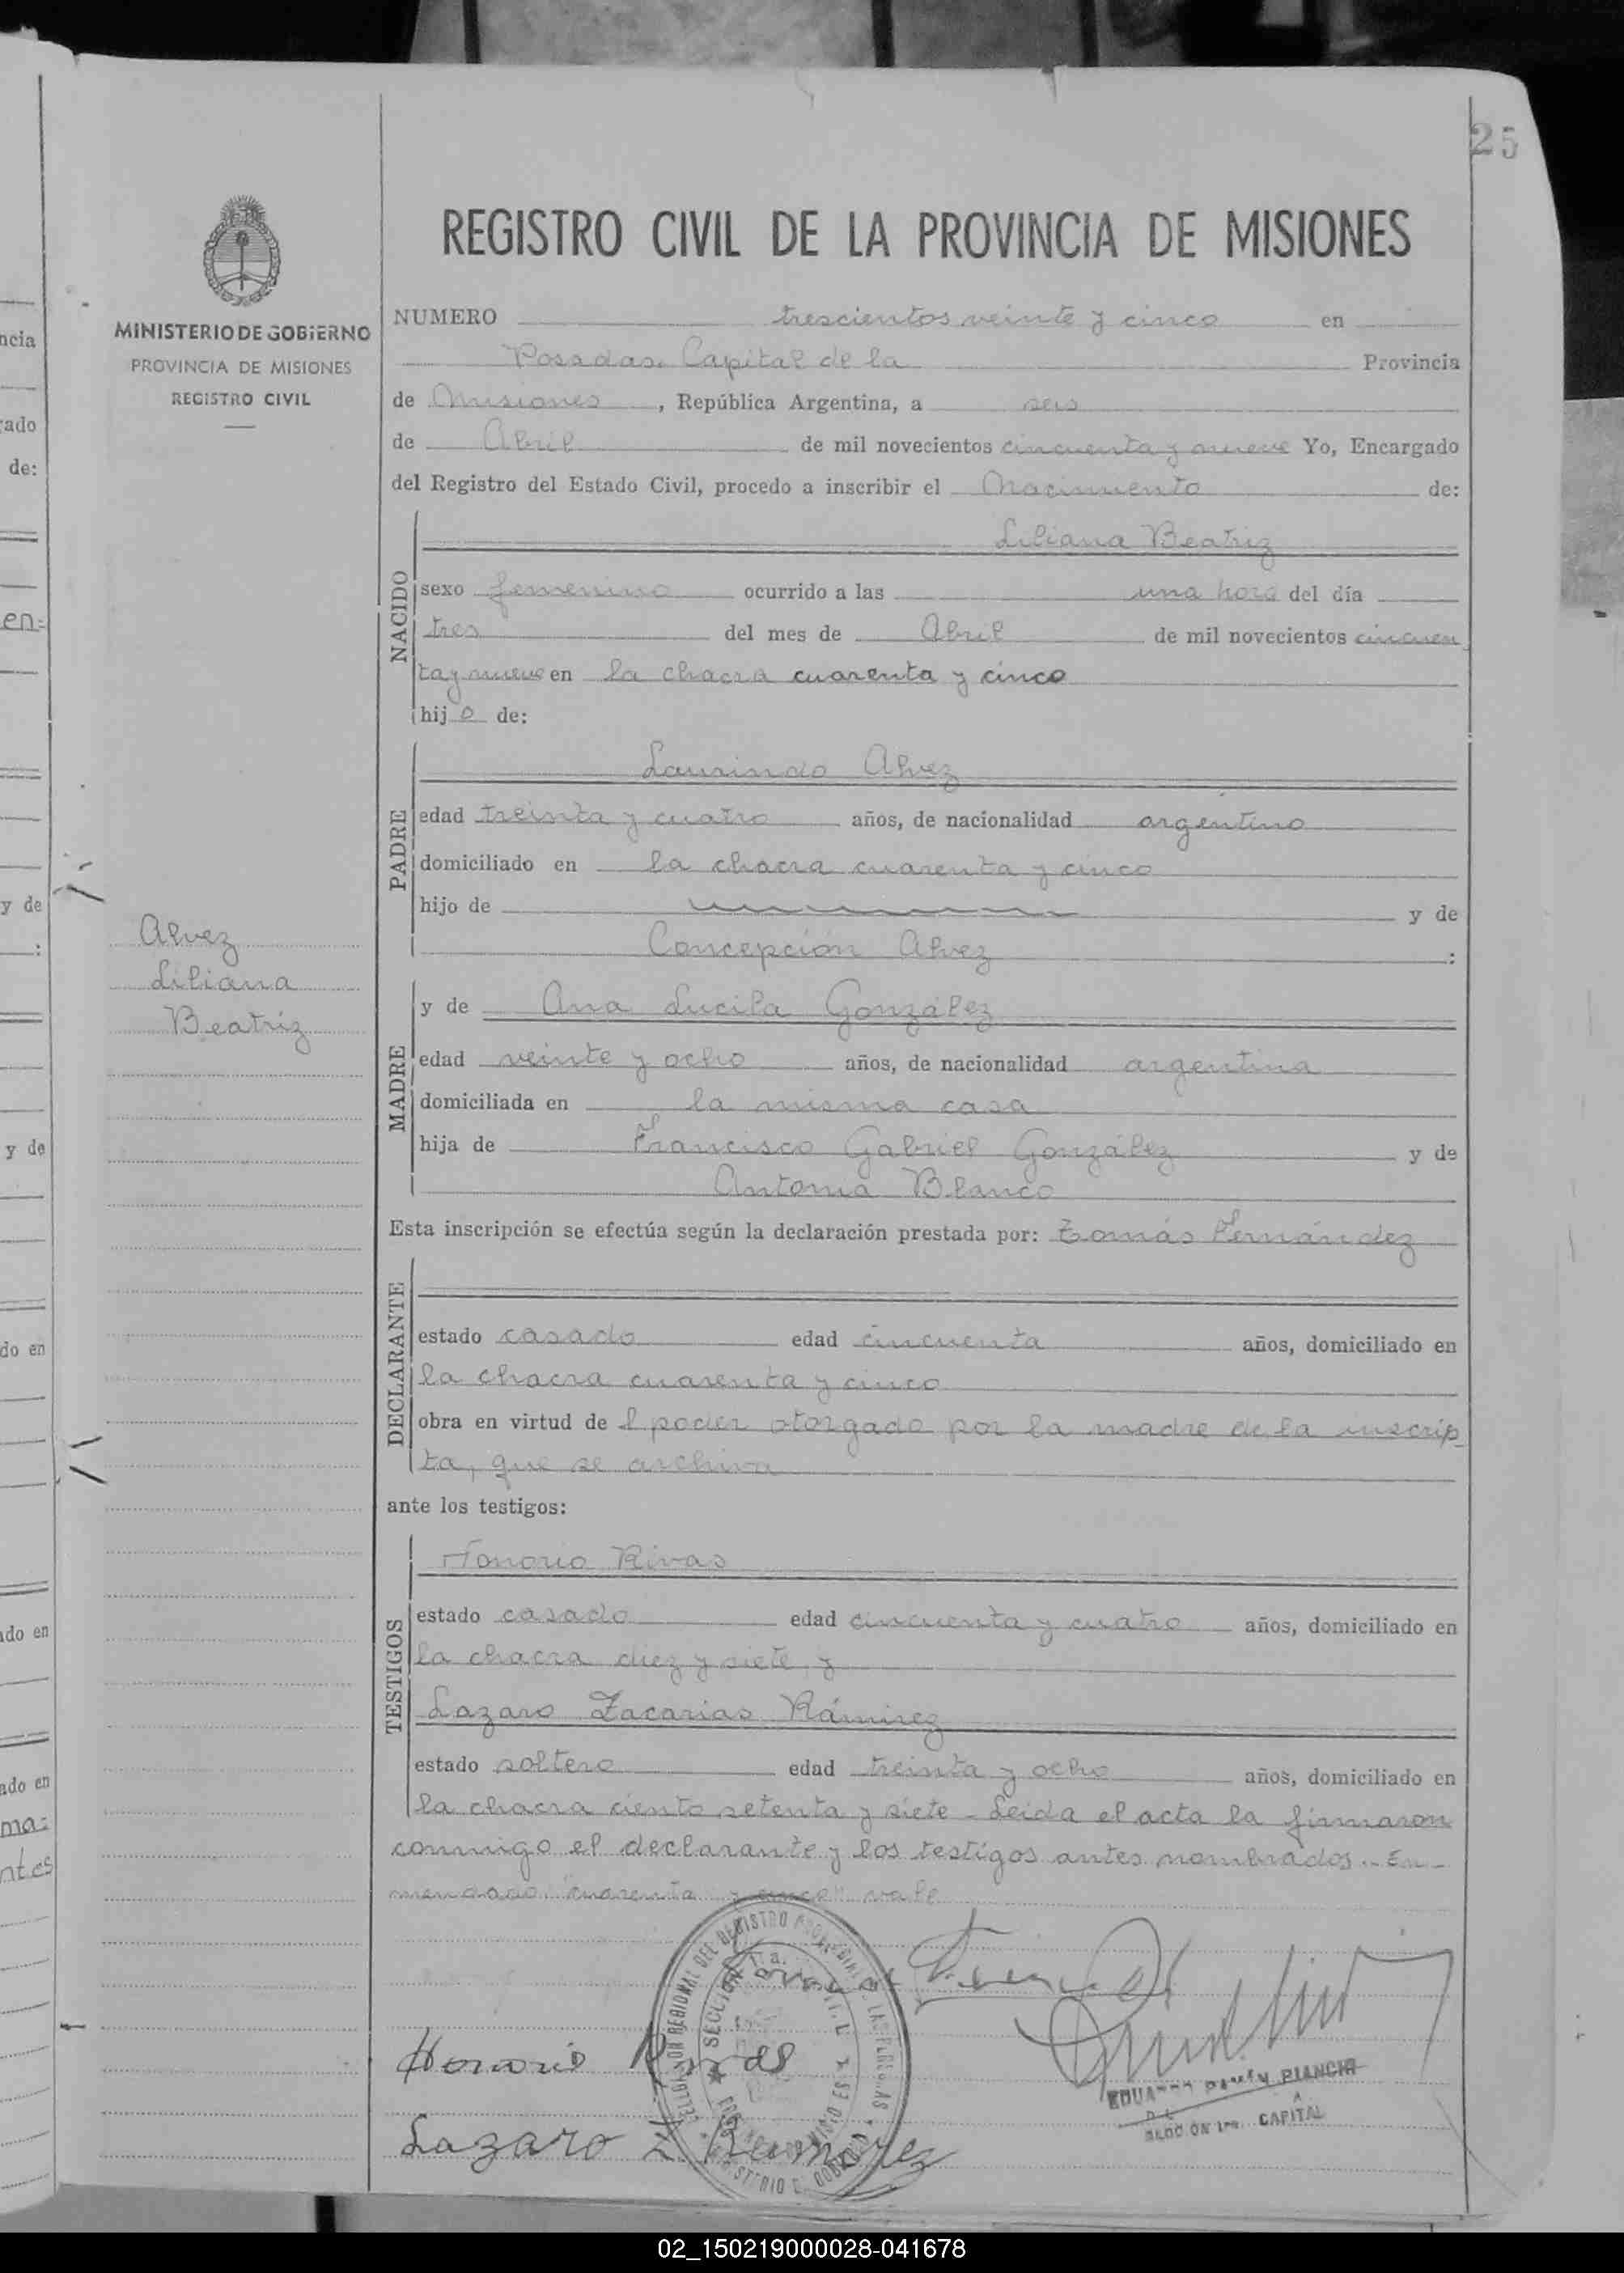 25
REGISTRO CIVIL DE LA PROVINCIA DE MISIONES
MINISTERIO DE GOBIERNO
PROVINCIA DE MISIONES
REGISTRO CIVIL
NUMERO trescientos veinte y cinco en
Posadas. Capital de la Provincia
de Misiones, República Argentina, a seis
de Abril de mil novecientos cincuenta y nueve Yo, Encargado
del Registro del Estado Civil, procedo a inscribir el Nacimiento de:
NACIDO
Liliana Beatriz
sexo femenino ocurrido a las una hora del día
tres del mes de Abril de mil novecientos cincuen
ta y nueve en la chacra cuarenta y cinco
hijo de:
PADRE
Laurindo Alvez
edad treinta y cuatro años, de nacionalidad argentino
domiciliado en la chacra cuarenta y cinco
hijo de y de
Concepción Alvez :
Alvez
Liliana
Beatriz
MADRE
y de Ana Lucila González
edad veinte y ocho años, de nacionalidad argentina
domiciliada en la misma casa
hija de Francisco Gabriel González y de
Antonia Blanco
Esta inscripción se efectúa según la declaración prestada por: Tomás Fernández
DECLARANTE
estado casado edad cincuenta años, domiciliado en
la chacra cuarenta y cinco
obra en virtud de l poder otorgado por la madre de la inscrip
ta, que se archiva
ante los testigos:
TESTIGOS
Honorio Rivas
estado casado edad cincuenta y cuatro años, domiciliado en
la chacra diez y siete y
Lazaro Zacarias Rámirez
estado soltero edad treinta y ocho años, domiciliado en
la chacra ciento setenta y siete - Leida el acta la firmaron
conmigo el declarante y los testigos antes nombrados.- En-
mendado: "cuarenta y cinco" vale
Honorio Rivas
Lazaro Z. Ramirez
CAPITAL
02_150219000028-041678